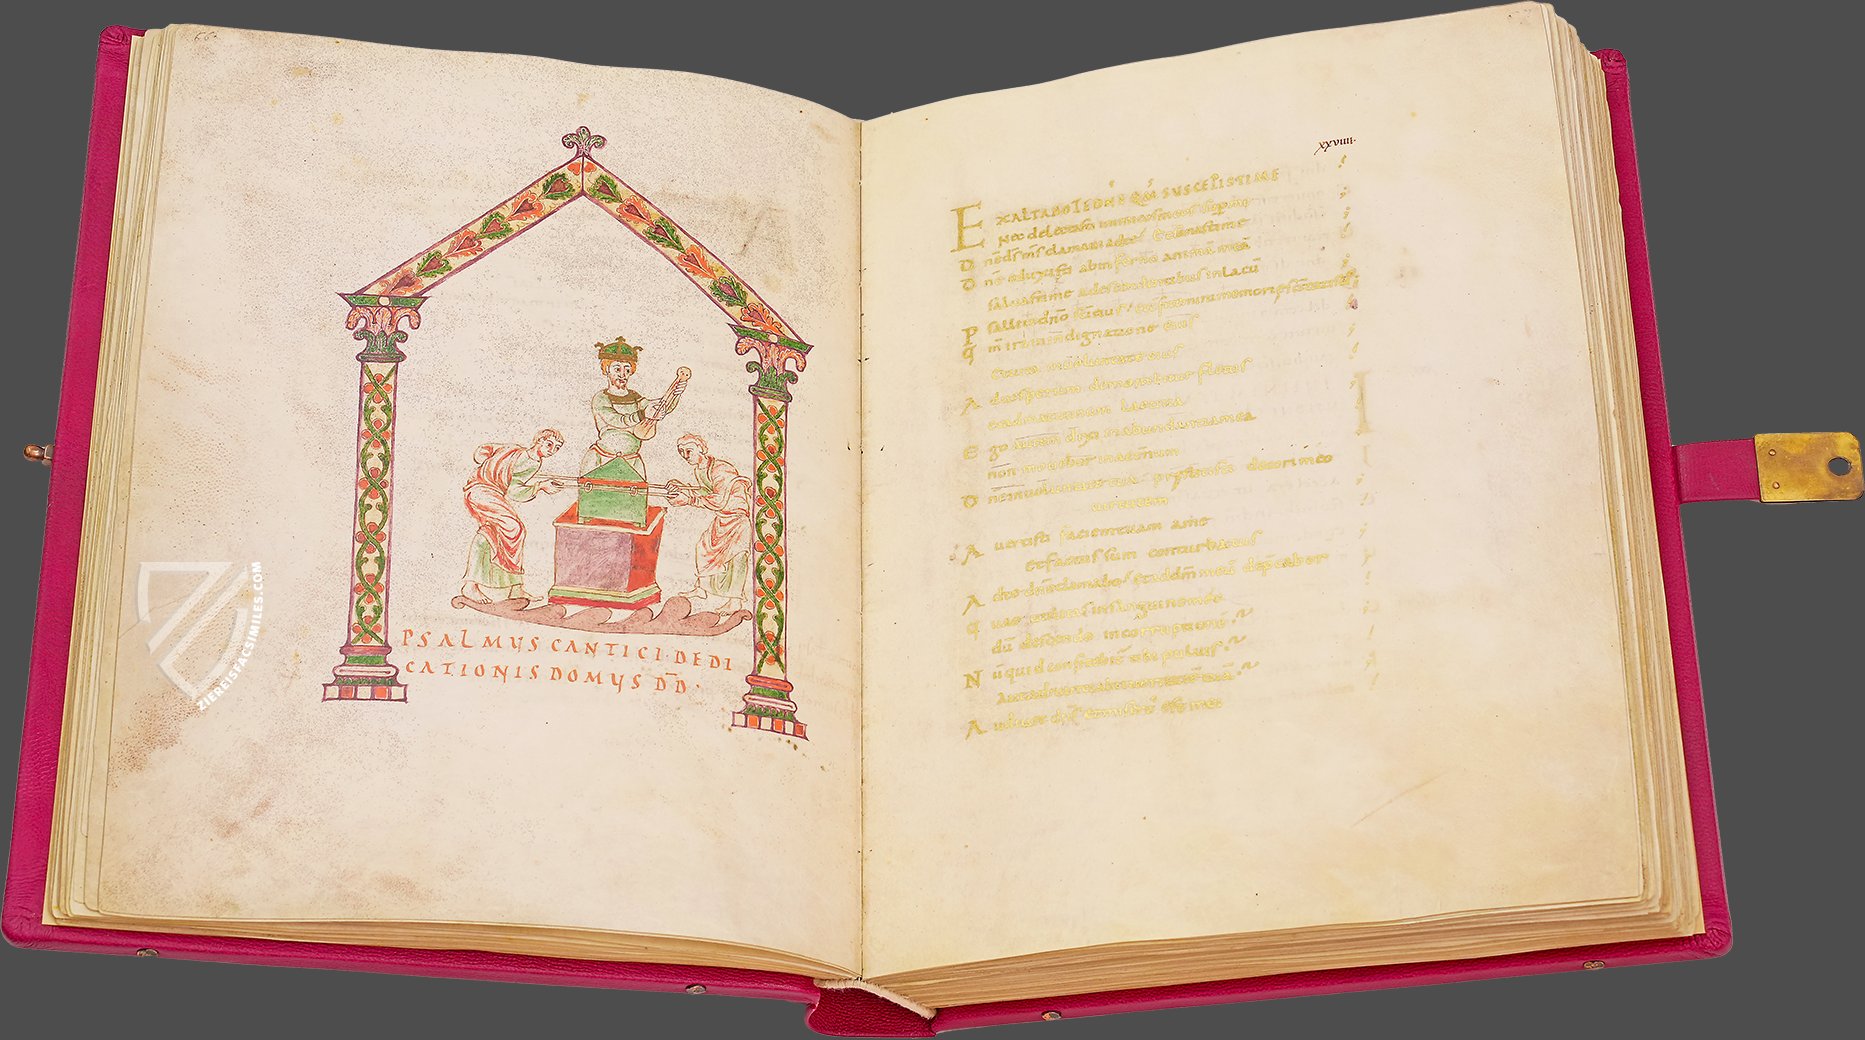 66.
PSALMVS CANTICI·DEDI
CATIONIS DOMVS D̄D̄·
ZIEREISFACSIMILES.COM
xxviiii·
EXALTABO TE DNE QM SUSCEPISTI ME
nec delectasti inimicos meos super me
Dne ds ms clamavi ad te et sanasti me
Dne eduxisti ab inferno animā meā
salvasti me a descendentibus in lacū
Psallite dno sci eius
qm ira in indignatione eius
et vita in voluntate eius
Ad vesperum demorabitur fletus
et ad matutinum laetitia
Ego autem dixi in abundantia mea
non movebor in aeternum
Dne in voluntate tua praestitisti decori meo
virtutem
Avertisti faciem tuam a me
et factus sum conturbatus
Ad te dne clamabo et ad dm meū deprecabor
Quae utilitas in sanguine meo
dū descendo in corruptionē
Nūquid confitebitur tibi pulvis